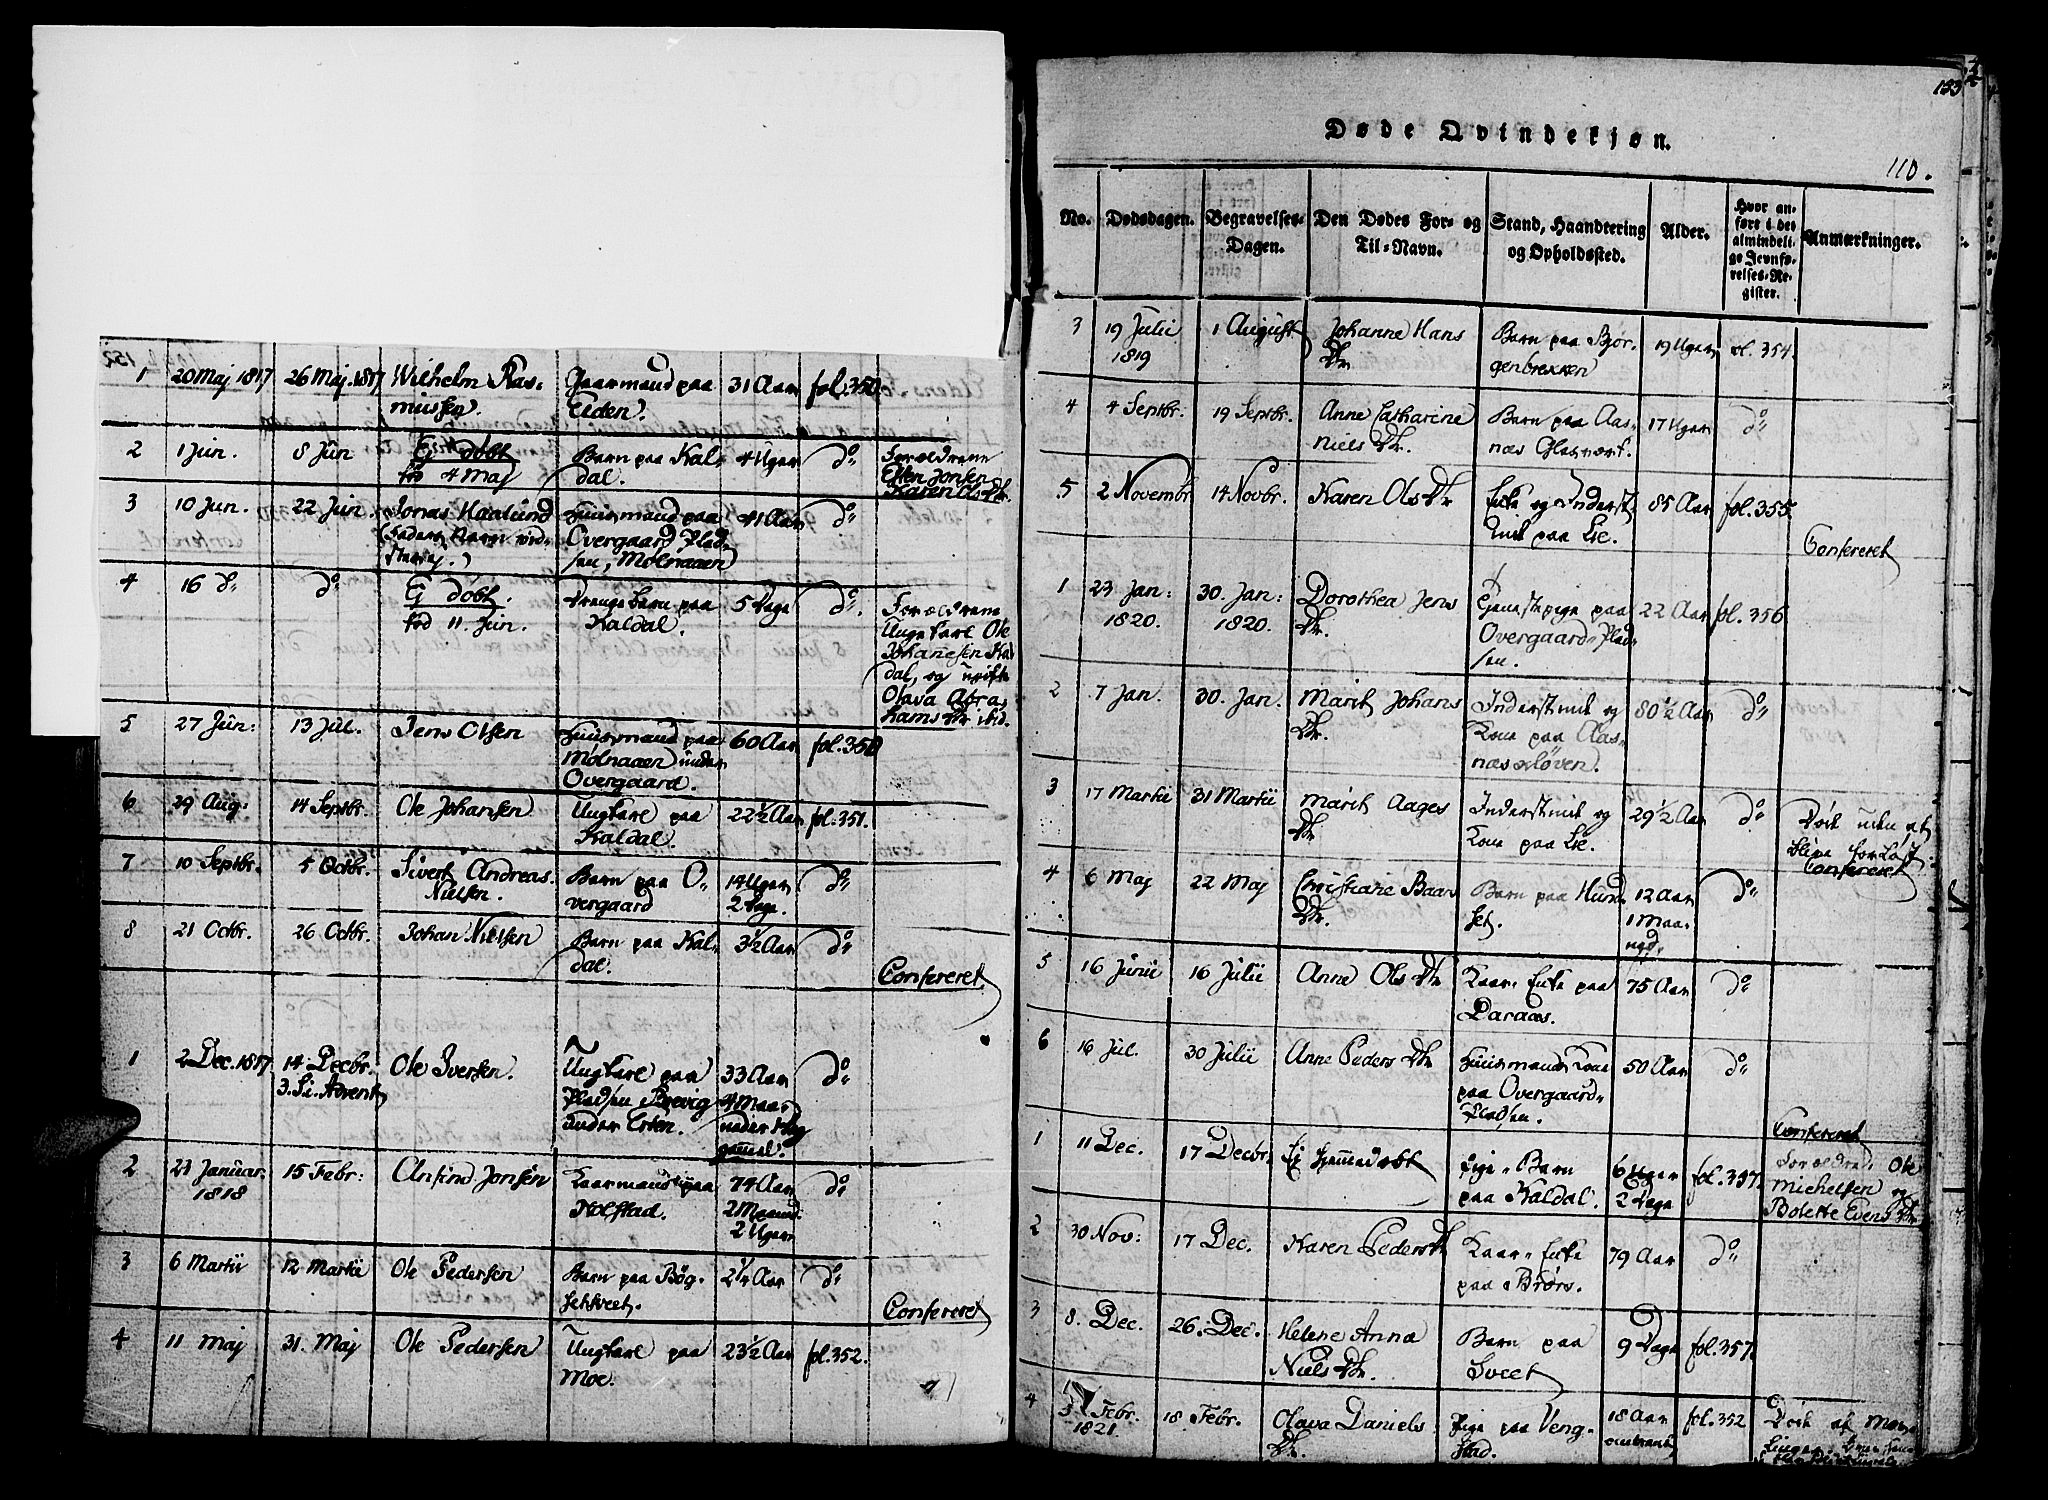 1 20 Maj 1817 26 Maj. 1817 Wilhelm Ras- Gaarmand paa 31 Aar fol. 350
mussen. Eiden.
2 1 Jun. 8 Jun Ej döbt Barn paa Kal- 4 Uger do Forældrene
fød 4 Maj dal. Esten Jonsen
Karen Olsdtr.
3 10 Jun. 22 Jun. Jonas Haalund Huusmand paa 41 Aar do
Overgaard Plad-
sen, Mölnaaen
4 16 do do Ej döbt. Drenge barn paa 5 Dage do. Forældrene
fød 11. Jun. Kaldal. Ungekarl Ole
Johanesen Kal
dal, og ugifte
Olava Abra-
hamsdtr. ibid.
5 27 Jun: 13 Jul. Jens Olsen Huusmand paa 60 Aar fol. 350
Mölnaaen under
Overgaard.
6 29 Aug: 14 Septbr. Ole Johansen Ungkarl paa 22½ Aar fol. 351.
Kaldal.
7 10 Septbr. 5 Octbr. Sivert Andreas Barn paa O- 14 Uger do
Nielsen. vergaard 2 Dage.
8 21 Octbr. 26 Octbr. Johan Nielsen Barn paa Kal- 3½ Aar do
dal. Confereret
1 2 Dec. 1817 14 Decbr. Ole Iversen. Ungkarl paa 33 Aar do
3. S. i. Advent Pladsen Brevig 4 Maa-
under Esten. neder
2 23 Januar. 15 Febr: Arfind Jonsen Kaarmand paa 74 Aar do
1818 Kolstad. 2 Maaned.
2 Uger
3 6 Martii 12 Martii Ole Pedersen Barn paa Bög- 2¼ Aar do
setsveet. Confereret
4 11 Maj 31. Maj Ole Pedersen Ungkarl paa 23½ Aar fol. 352.
Moe.
153
Døde Qvindekjøn.
110.
No. Dødsdagen. Begravelses-Dagen. Den Dødes For- og Til-Navn. Stand, Haandtering og Opholdssted. Alder. Hvor anført i det almindelige Jevnførelses-Register. Anmærkninger.
3 19 Julii 1 August Johanne Hans Barn paa Bjør- 19 Uger fol. 354.
1819 dtr. genbrekken
4 4 Septbr. 19 Septbr. Anne Catharine Barn paa Aas- 17 Uger do
Niels dtr. næs Glasværk.
5 2 Novembr 14 Novbr. Karen Ols dtr Enke og Inderst- 85 Aar fol. 355.
paa Lie. Confereret
1 23 Jan: 30. Jan: Dorothea Jens Tjenestpige paa 22 Aar fol. 356
1820. 1820. dtr. Overgaard-Plad-
sen.
2 7 Jan. 30. Jan. Marit Johans Inderst og 80½ Aar do
dtr. Kone paa Aas-
næskløven.
3 17 Martii 31 Martii Marit Aages Inderst og 29½ Aar do Död uden at
dtr. Kone paa Lie. blive forløst.
Confereret
4 6 Maj 22 Maj Christiane Baars Barn paa Hund 12 Aar do
dtr. set. 1 Maa-
ned.
5 16 Junii 16 Julii Anne Ols dtr Kaar- Enke paa 75 Aar do
Daraas.
6 16 Jul. 30 Julii Anne Peders dtr Huusmands Kone 50 Aar do
paa Overgaard-
Pladsen. Confereret
1 11 Dec. 17 Decbr. Ej hjemmedøbt Pige- Barn 6 Uger fol. 357. Forældre: Ole
paa Kaldal. 2 Dage Michelsen og
Bolette Evens dtr
2 30 Nov: 17 Dec. Karen Pedersdtr Kaar- Enke 79 Aar do
paa Brørs.
3 8. Dec. 26. Dec. Helene Anna Barn paa 9 Dage fol. 357.
Niels dtr. Sveet
4 Febr. 18 Febr. Olava Daniels Pige paa Veng- 18 Aar fol. 352 Död af Mes-
1821. dtr. stad. omtrent linger.